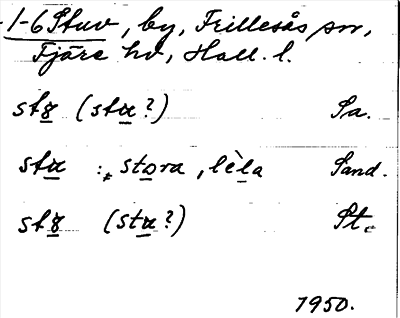 1-6 Stuv, by, Frillesås sn,
Fjäre hd, Hall. l.
st8 (stu?) Sa.
stu :, stora, lèla Sand.
st8 (stu?) St.
1950.